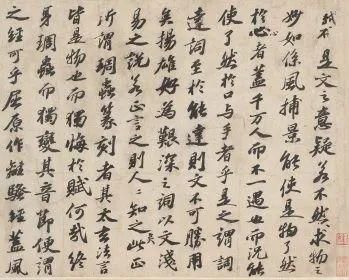 軾不 是文之意疑若不然求物
妙如係風捕景能使是物了然
於心者蓋千万人而不一遇也而況能
使了然於口与手者乎是之謂詞
達詞至於能達則文不可勝用
矣揚雄好為艱深之詞以文淺
易之說若正言之則人々知之矣此正
所謂琱蟲篆刻者其太玄法言
皆是物也而獨悔於賦何哉終
身琱蟲而獨變其音節便謂
之經可乎屈原作離騷經蓋風